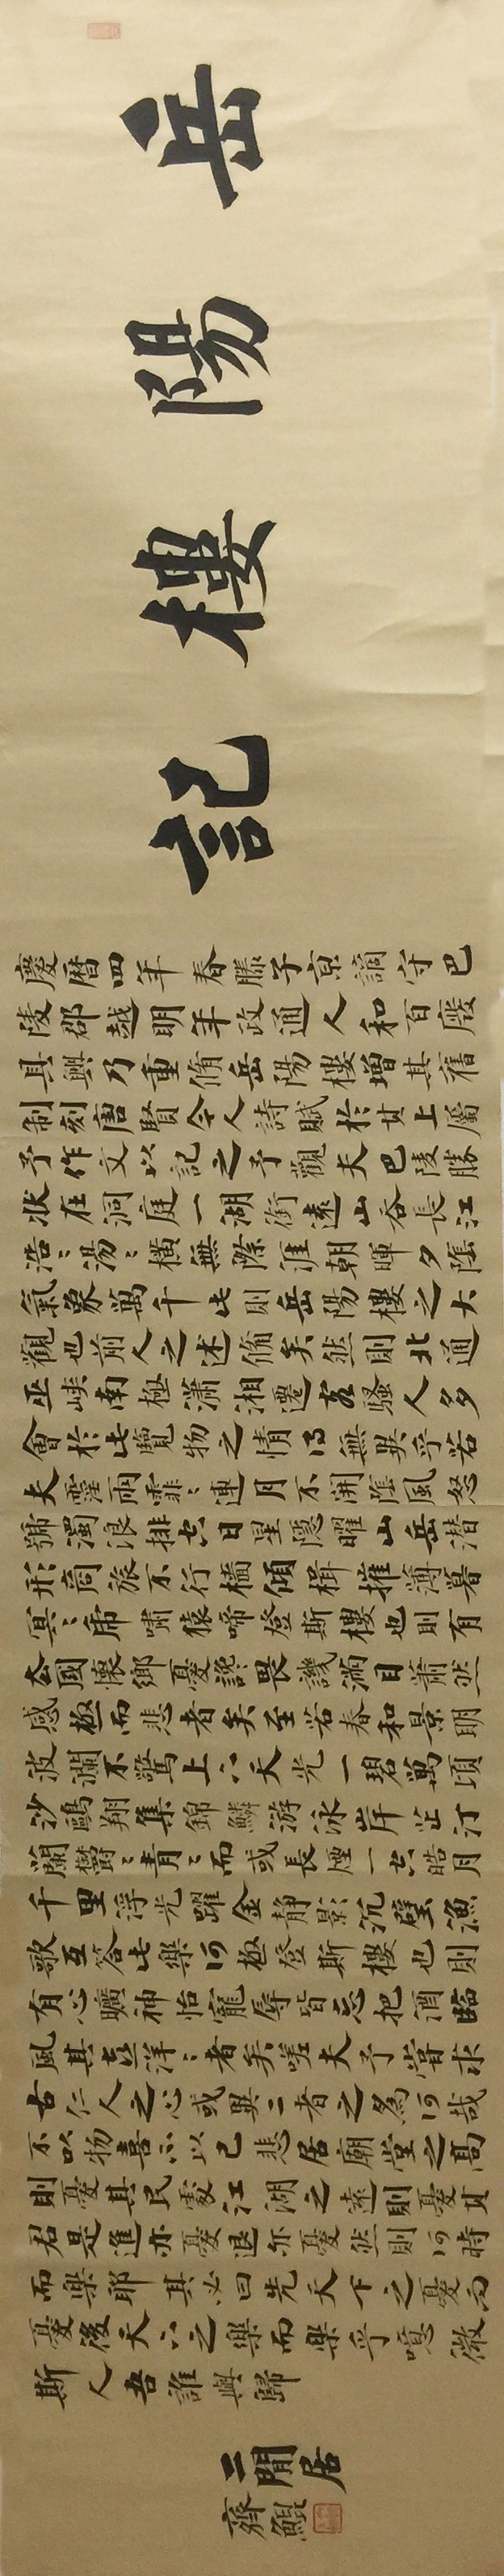 岳陽樓記
慶曆四年春滕子京謫守巴
陵郡越明年政通人和百廢
具興乃重脩岳陽樓增其舊
制刻唐賢今人詩賦於其上屬
予作文以記之予觀夫巴陵勝
狀在洞庭一湖銜遠山吞長江
浩〻湯〻橫無際涯朝暉夕陰
氣象萬千此則岳陽樓之大
觀也前人之述備矣然則北通
巫峽南極瀟湘遷客騷人多
會於此覽物之情得無異乎若
夫霪雨霏〻連月不開陰風怒
號濁浪排空日星隱曜山岳潛
形商旅不行檣傾楫摧薄暮
冥〻虎嘯猿啼登斯樓也則有
去國懷鄉憂讒畏譏滿目蕭然
感極而悲者矣至若春和景明
波瀾不驚上下天光一碧萬頃
沙鷗翔集錦鱗游泳岸芷汀
蘭鬱〻青〻而或長煙一空皓月
千里浮光躍金靜影沉璧漁
歌互答此樂何極登斯樓也則
有心曠神怡寵辱皆忘把酒臨
風其喜洋〻者矣嗟夫予嘗求
古仁人之心或異二者之為何哉
不以物喜不以己悲居廟堂之高
則憂其民處江湖之遠則憂其
君是進亦憂退亦憂然則何時
而樂耶其必曰先天下之憂而
憂後天下之樂而樂乎噫微
斯人吾誰與歸
二閒居
齋鯤